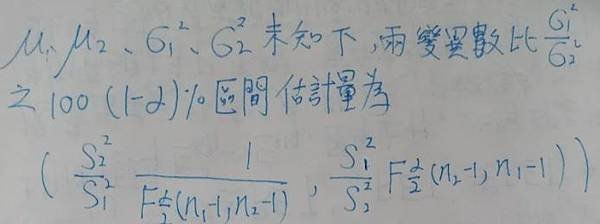 μ₁、μ₂、σ₁²、σ₂² 未知下,兩變異數比 σ₁²/σ₂²
之 100 (1-α)% 區間估計量為
( S₂²/S₁² 1/F_{α/2}(n₁-1, n₂-1) , S₁²/S₂² F_{α/2}(n₂-1, n₁-1) )